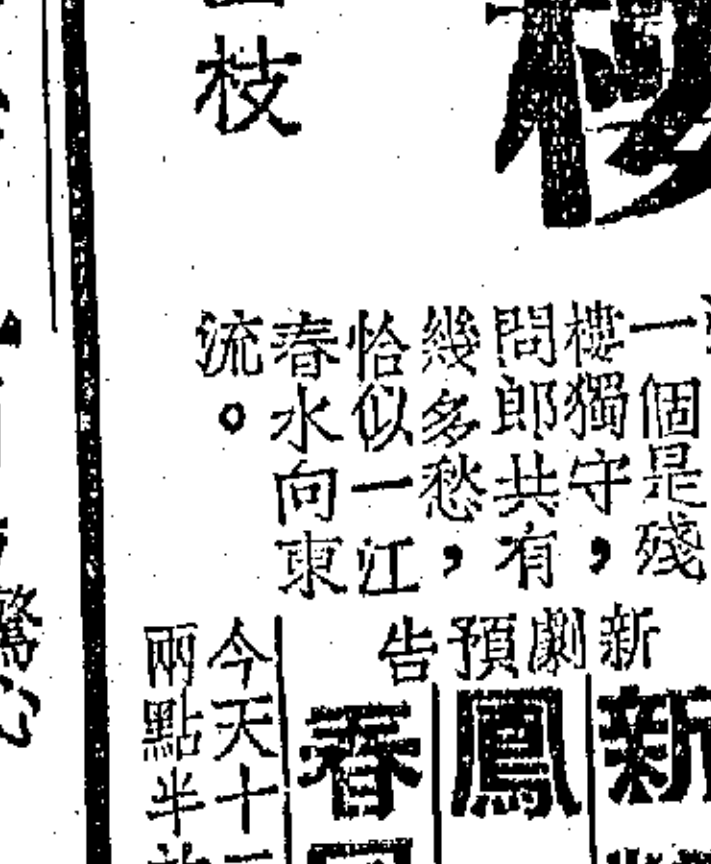 一個是殘
樓獨守，
問郎共有
幾多愁，
恰似一江
春水向東
流。
枝
新劇預告
新
鳳
春
今天十二
兩點半
驚